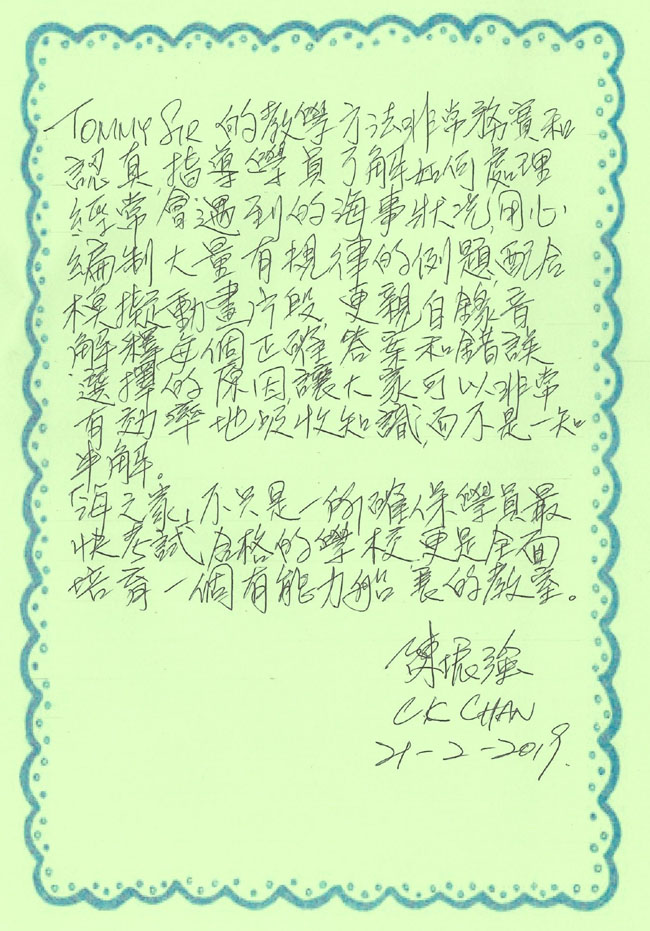 TOMMY SIR 的教學方法非常務實和
認真,指導學員了解如何處理
經常會遇到的海事狀況,用心
編制大量有規律的例題,配合
模擬動畫片段,更親自錄音
解釋每個正確答案和錯誤
選擇的原因讓大家可以非常
有効率地吸收知識,而不是一知
半解。
「海之家」不只是一的確保學員最
快考試合格的學校,更是全面
培育一個有能力船長的教室。
陳振強
CK CHAN
21-2-2019.